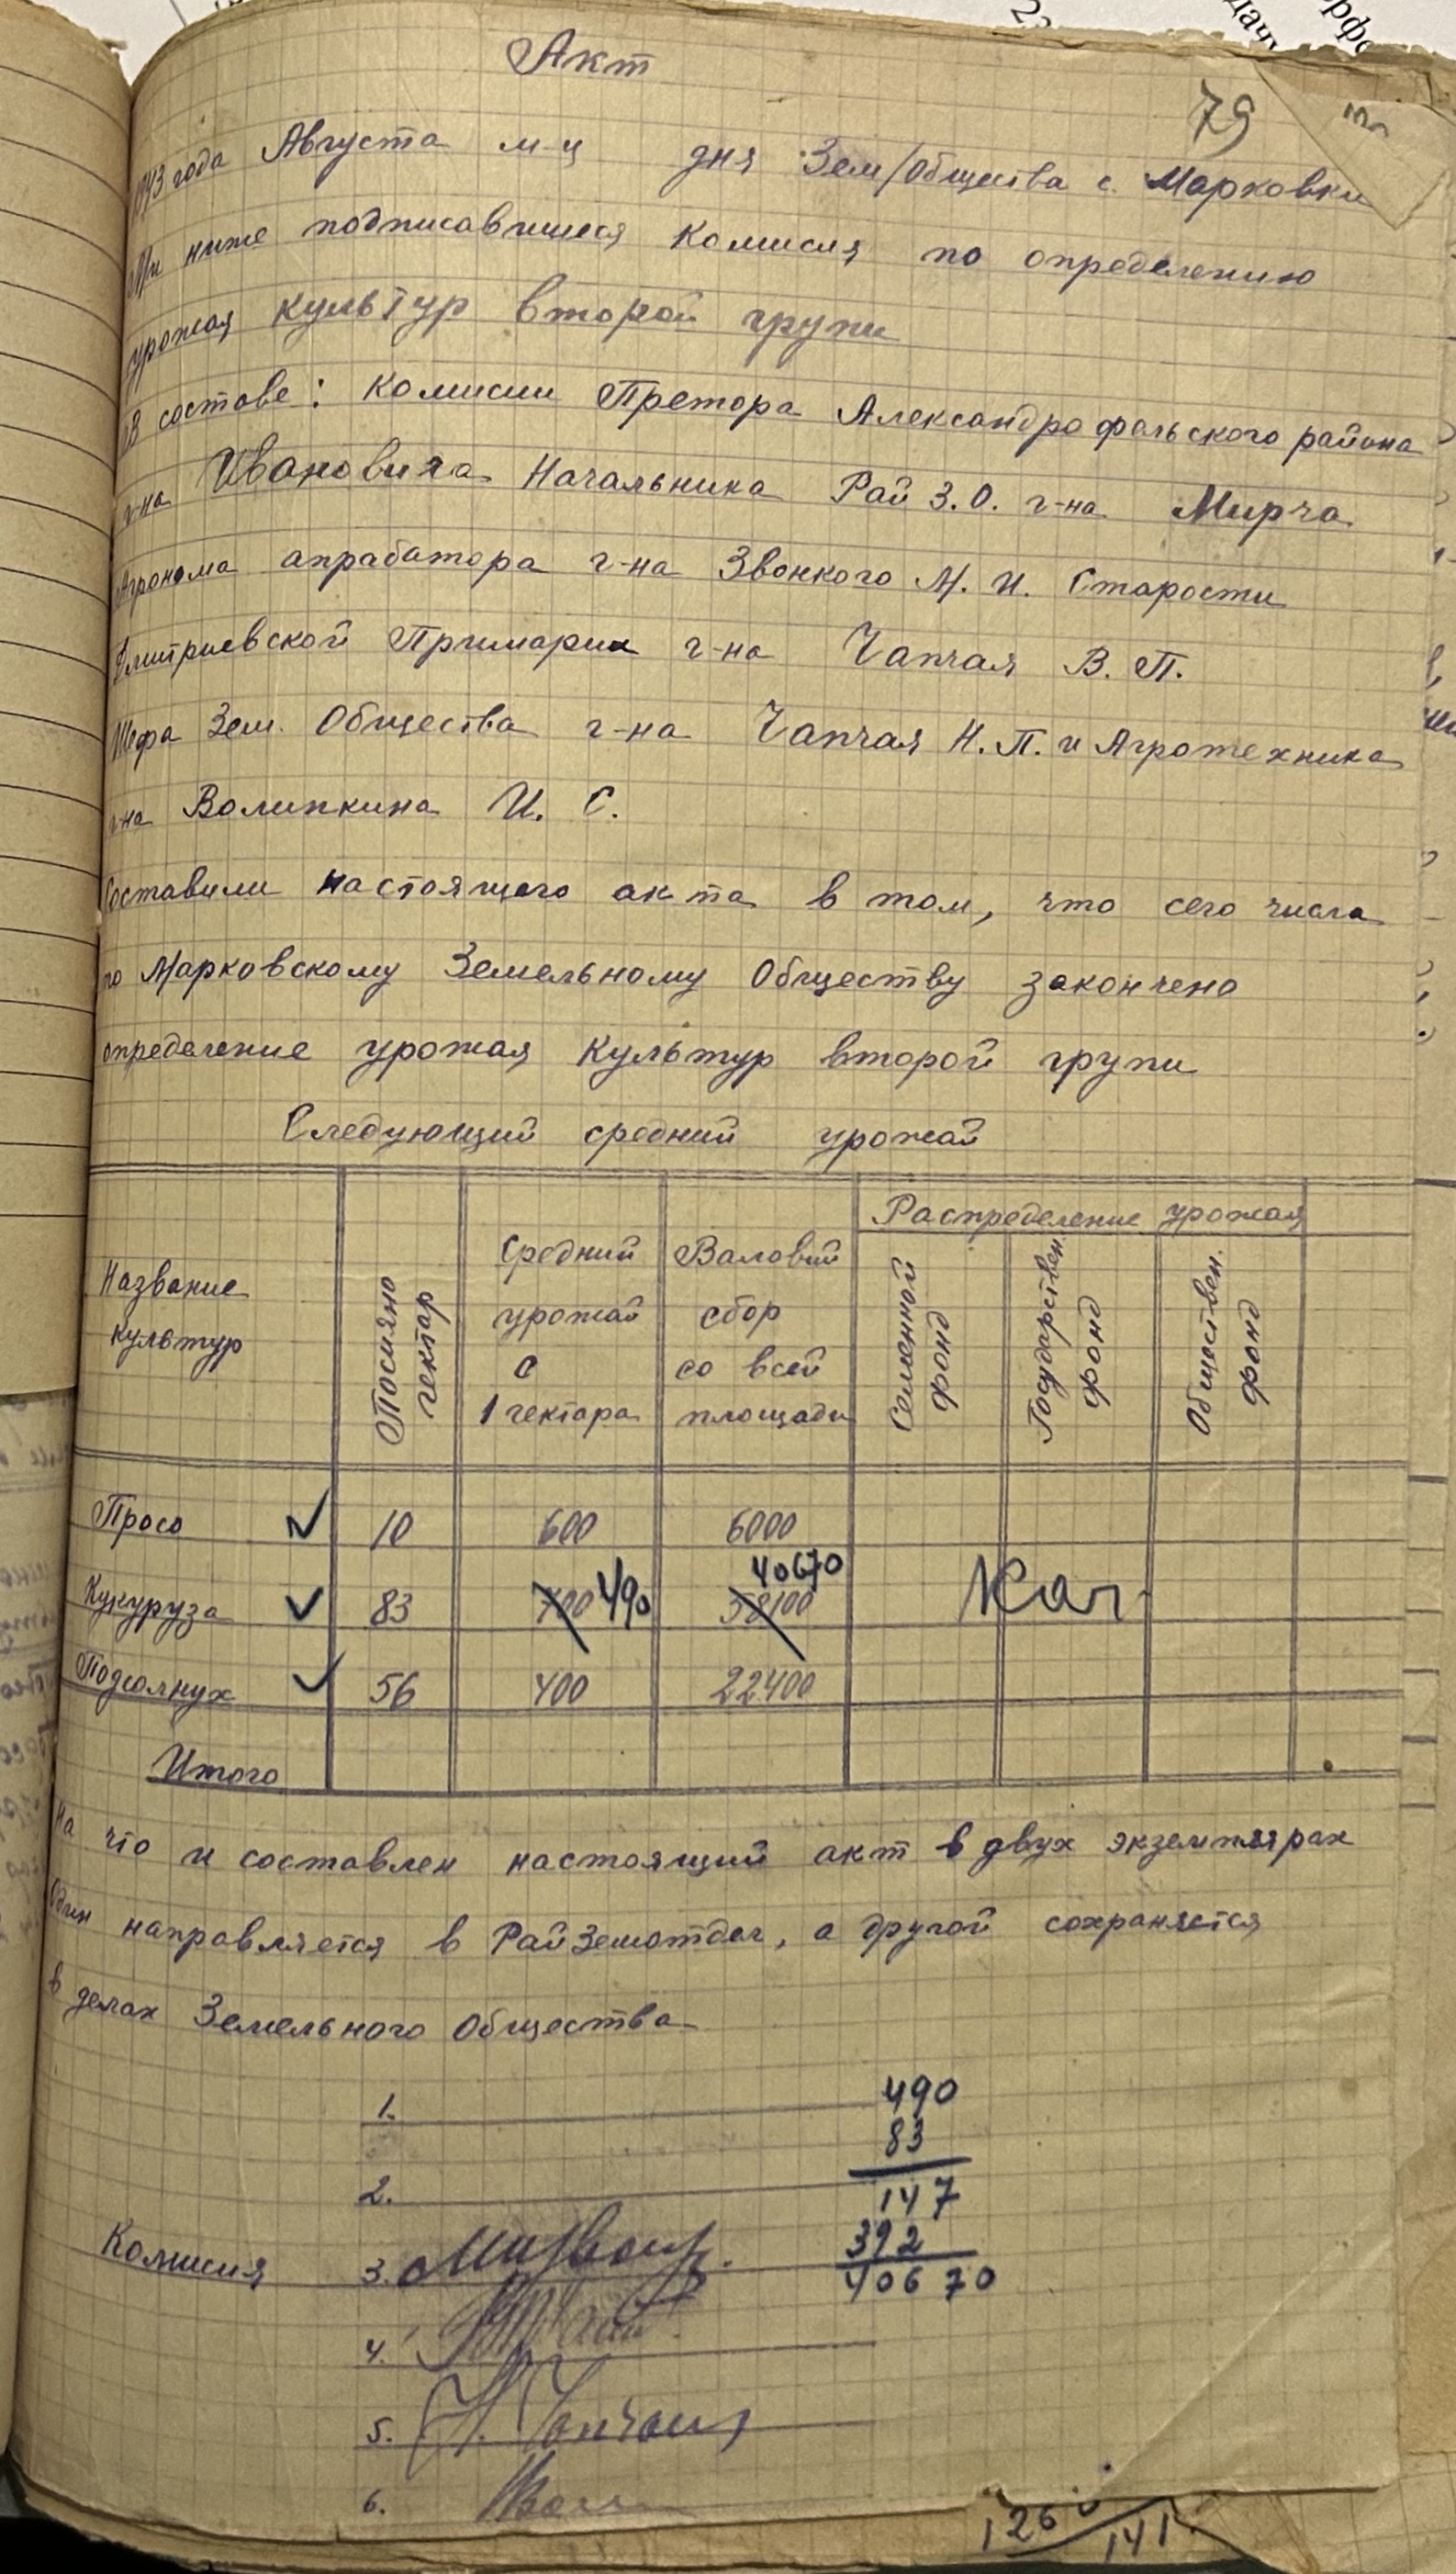 Акт
79
1943 года Августа м-ц дня Зем/Общества с. Марковки
Ми ниже подписавшиеся Комисия по определению
урожая культур второй групи
В состове: Комисии Претора Александрофельского района
г-на Ивановича Начальника Рай З.О. г-на Мирча
Агронома апрабатора г-на Звонкого М. И. Старости
Дмитриевской Примарии г-на Чапчая В. П.
Шефа Зем. Общества г-на Чапчая Н. П. и Агротехника
г-на Волипкина И. С.
Составили настоящего акта в том, что сего числа
по Марковскому Земельному Обществу закончено
определение урожая культур второй групи
Следующий средний урожай
Название культур
Посияно гектар
Средний урожай с 1 гектара
Валовий сбор со всей площади
Распределение урожая
Семенной фонд
Государствен. фонд
Обществен. фонд
Просо 10 600 6000
40670
Кукуруза 83 700 490 58100
Подсолнух 56 400 22400
Итого
На что и составлен настоящий акт в двух экземплярах
Один направляется в РайЗемотдел, а другой сохраняется
в делах Земельного Общества
1.
490
83
2.
147
392
Комисия 3.
40670
4.
5. Н. Чапчая
6.
126
141